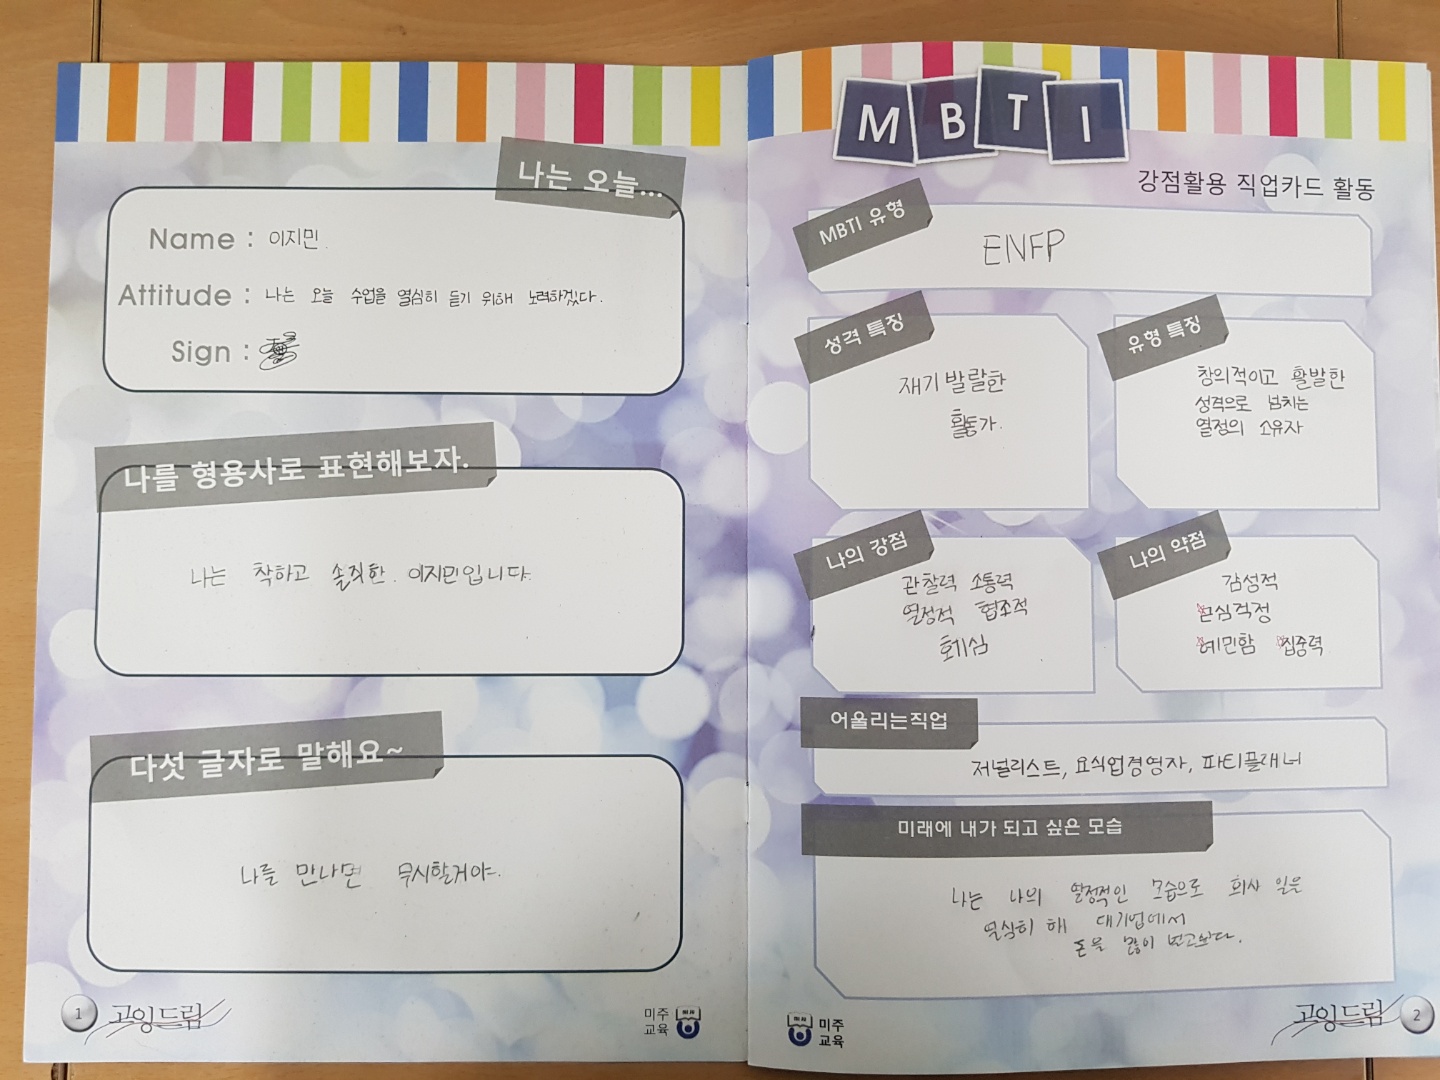 나는 오늘...
Name : 이지민.
Attitude : 나는 오늘 수업을 열심히 듣기 위해 노력하겠다.
Sign :
나를 형용사로 표현해보자.
나는 착하고 솔직한. 이지민입니다.
다섯 글자로 말해요~
나를 만나면 무시할거야.
1 고잉드림
미주
교육
MBTI
강점활용 직업카드 활동
MBTI 유형
ENFP
성격 특징
재기발랄한
활동가.
유형 특징
창의적이고 활발한
성격으로 넘치는
열정의 소유자
나의 강점
관찰력 소통력
열정적 협조적
호기심
나의 약점
감성적
근심걱정
예민함 집중력
어울리는직업
저널리스트, 요식업경영자, 파티플래너
미래에 내가 되고 싶은 모습
나는 나의 열정적인 모습으로 회사 일을
열심히 해 대기업에서
돈을 많이 벌고싶다.
미주
교육
고잉드림 2